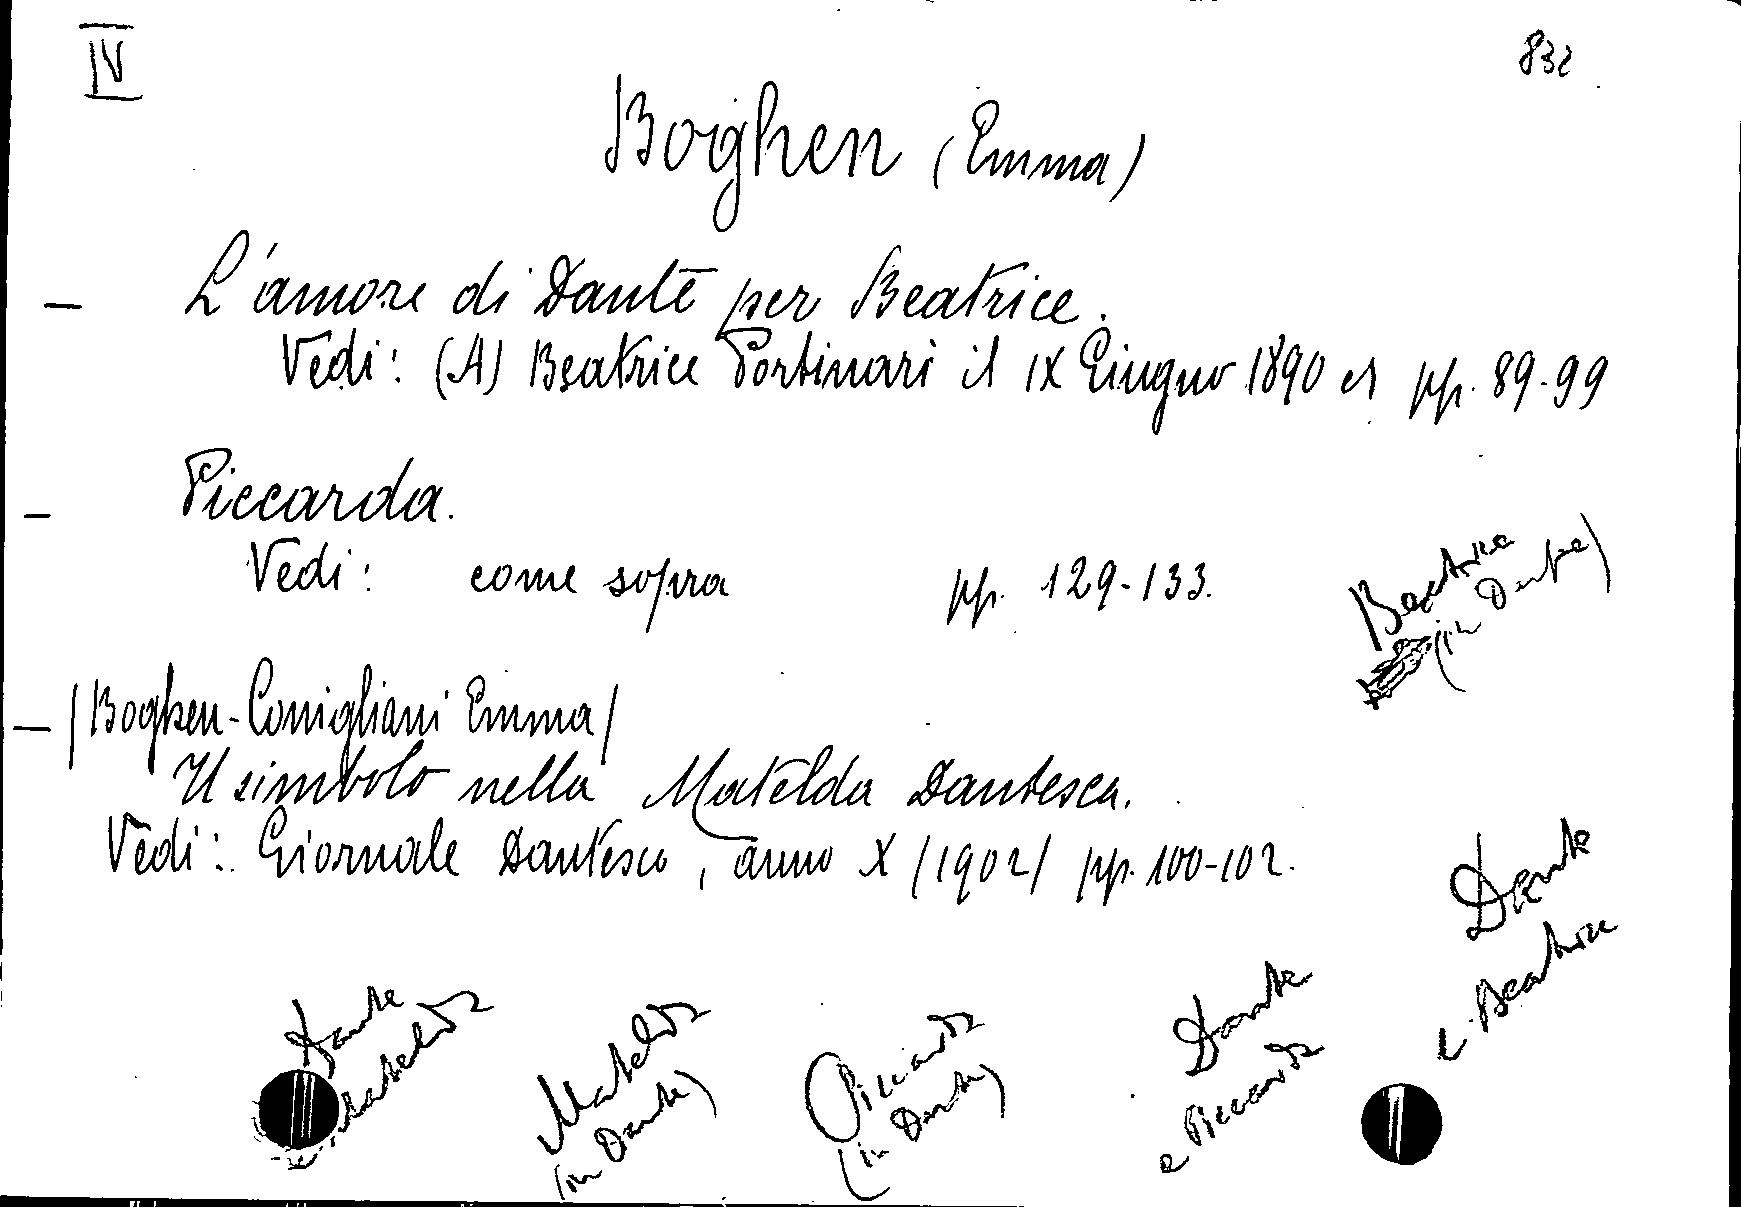 IV
832
Boghen (Emma)
— L'amore di Dante per Beatrice.
Vedi: (A) Beatrice Portinari il IX Giugno 1890 pp. 89-99
— Piccarda.
Vedi: come sopra pp. 129-133.
Beatrice
(in Dante)
— /Boghen-Conigliani Emma/
Il simbolo nella Matelda Dantesca.
Vedi: Giornale Dantesco, anno X /1902/ pp. 100-102.
Dante
e Beatrice
Dante
Matelda
Matelda
(in Dante)
Piccarda
(in Dante)
Dante
e Piccarda